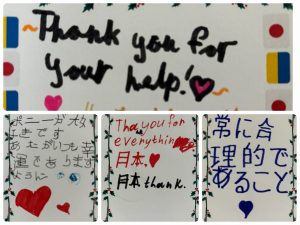 Thank you for
your help!
ポニーが大
好きです
いつも幸
運であります
ように
you for
everything
月本.
月本 thank.
常に合
理的で
あること